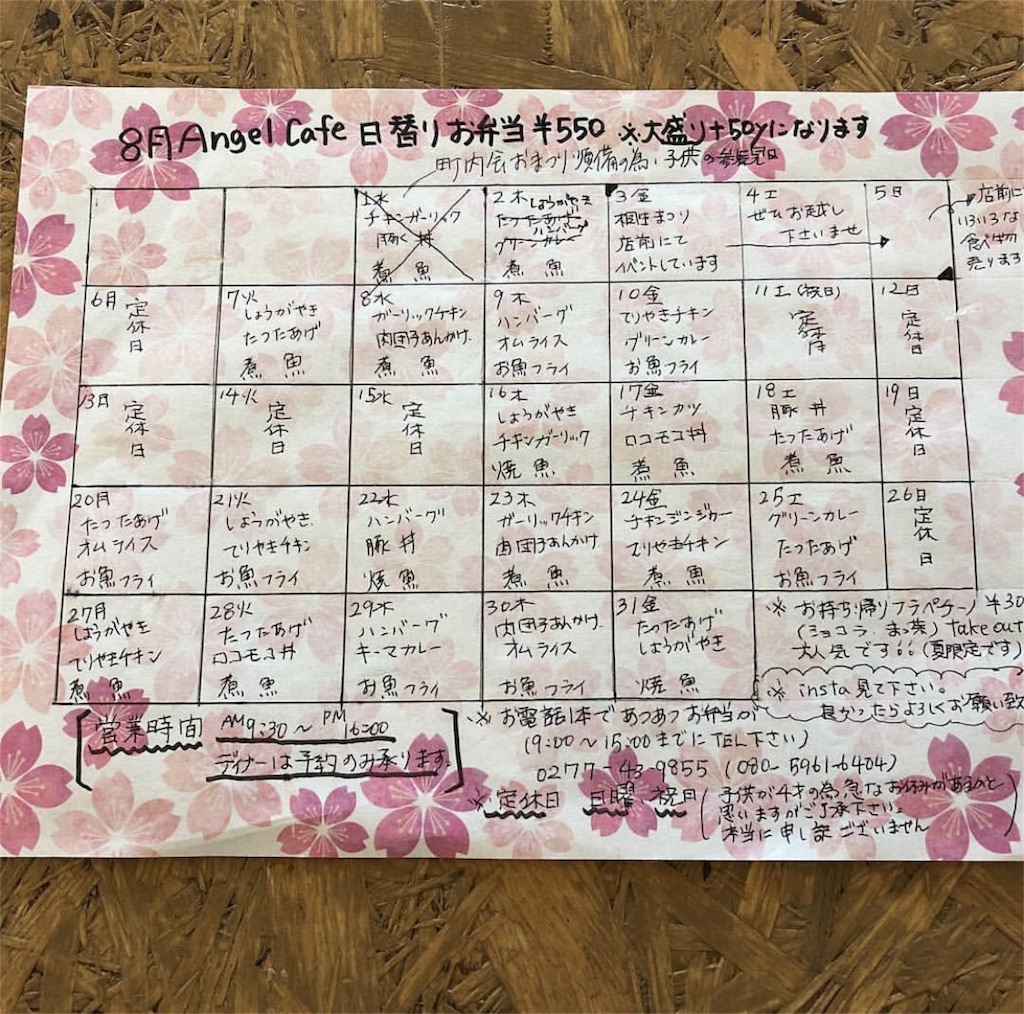 8月 Angel Cafe 日替りお弁当 ¥550 ※大盛り+50yになります
町内会おまつり準備の為、子供の
1水
チキンガーリック
丼
煮魚
2木 しょうがやき
たったあげ ハンバーグ
グリーンカレー
煮魚
3金
桐生まつり
店前にて
イベントしています
4土
ぜひお越し
下さいませ
5日
店前に
いろいろな
食べ物
売ります
6月
定休日
7火
しょうがやき
たつたあげ
煮魚
8水
ガーリックチキン
肉団子あんかけ
煮魚
9木
ハンバーグ
オムライス
お魚フライ
10金
てりやきチキン
グリーンカレー
お魚フライ
11土(祝日)
定休日
12日
定休日
13日
定休日
14火
定休日
15水
定休日
16木
しょうがやき
チキンガーリック
焼魚
17金
チキンカツ
ロコモコ丼
煮魚
18土
豚丼
たつたあげ
煮魚
19日
定休日
20月
たったあげ
オムライス
お魚フライ
21火
しょうがやき
てりやきチキン
お魚フライ
22水
ハンバーグ
豚丼
焼魚
23木
ガーリックチキン
肉団子あんかけ
煮魚
24金
チキンジンジャー
てりやきチキン
煮魚
25土
グリーンカレー
たったあげ
お魚フライ
26日
定休日
27月
しょうがやき
てりやきチキン
煮魚
28火
たったあげ
ロコモコ丼
煮魚
29水
ハンバーグ
キーマカレー
お魚フライ
30木
肉団子あんかけ
オムライス
お魚フライ
31金
たったあげ
しょうがやき
焼魚
※お持ち帰りフラペチーノ ¥30
(ショコラ、まっ茶) take out
大人気です!!(夏限定です)
※insta見て下さい。
良かったらよろしくお願い致
営業時間 AM9:30〜PM16:00
ディナーは予約のみ承ります。
※お電話1本であつあつお弁当が
(9:00〜15:00までにTEL下さい)
0277-43-9855 (080-5961-6404)
※定休日 日曜、祝日
(子供が4才の為、急なお休みがあるかと
思いますがご了承下さい。
本当に申し訳ございません)